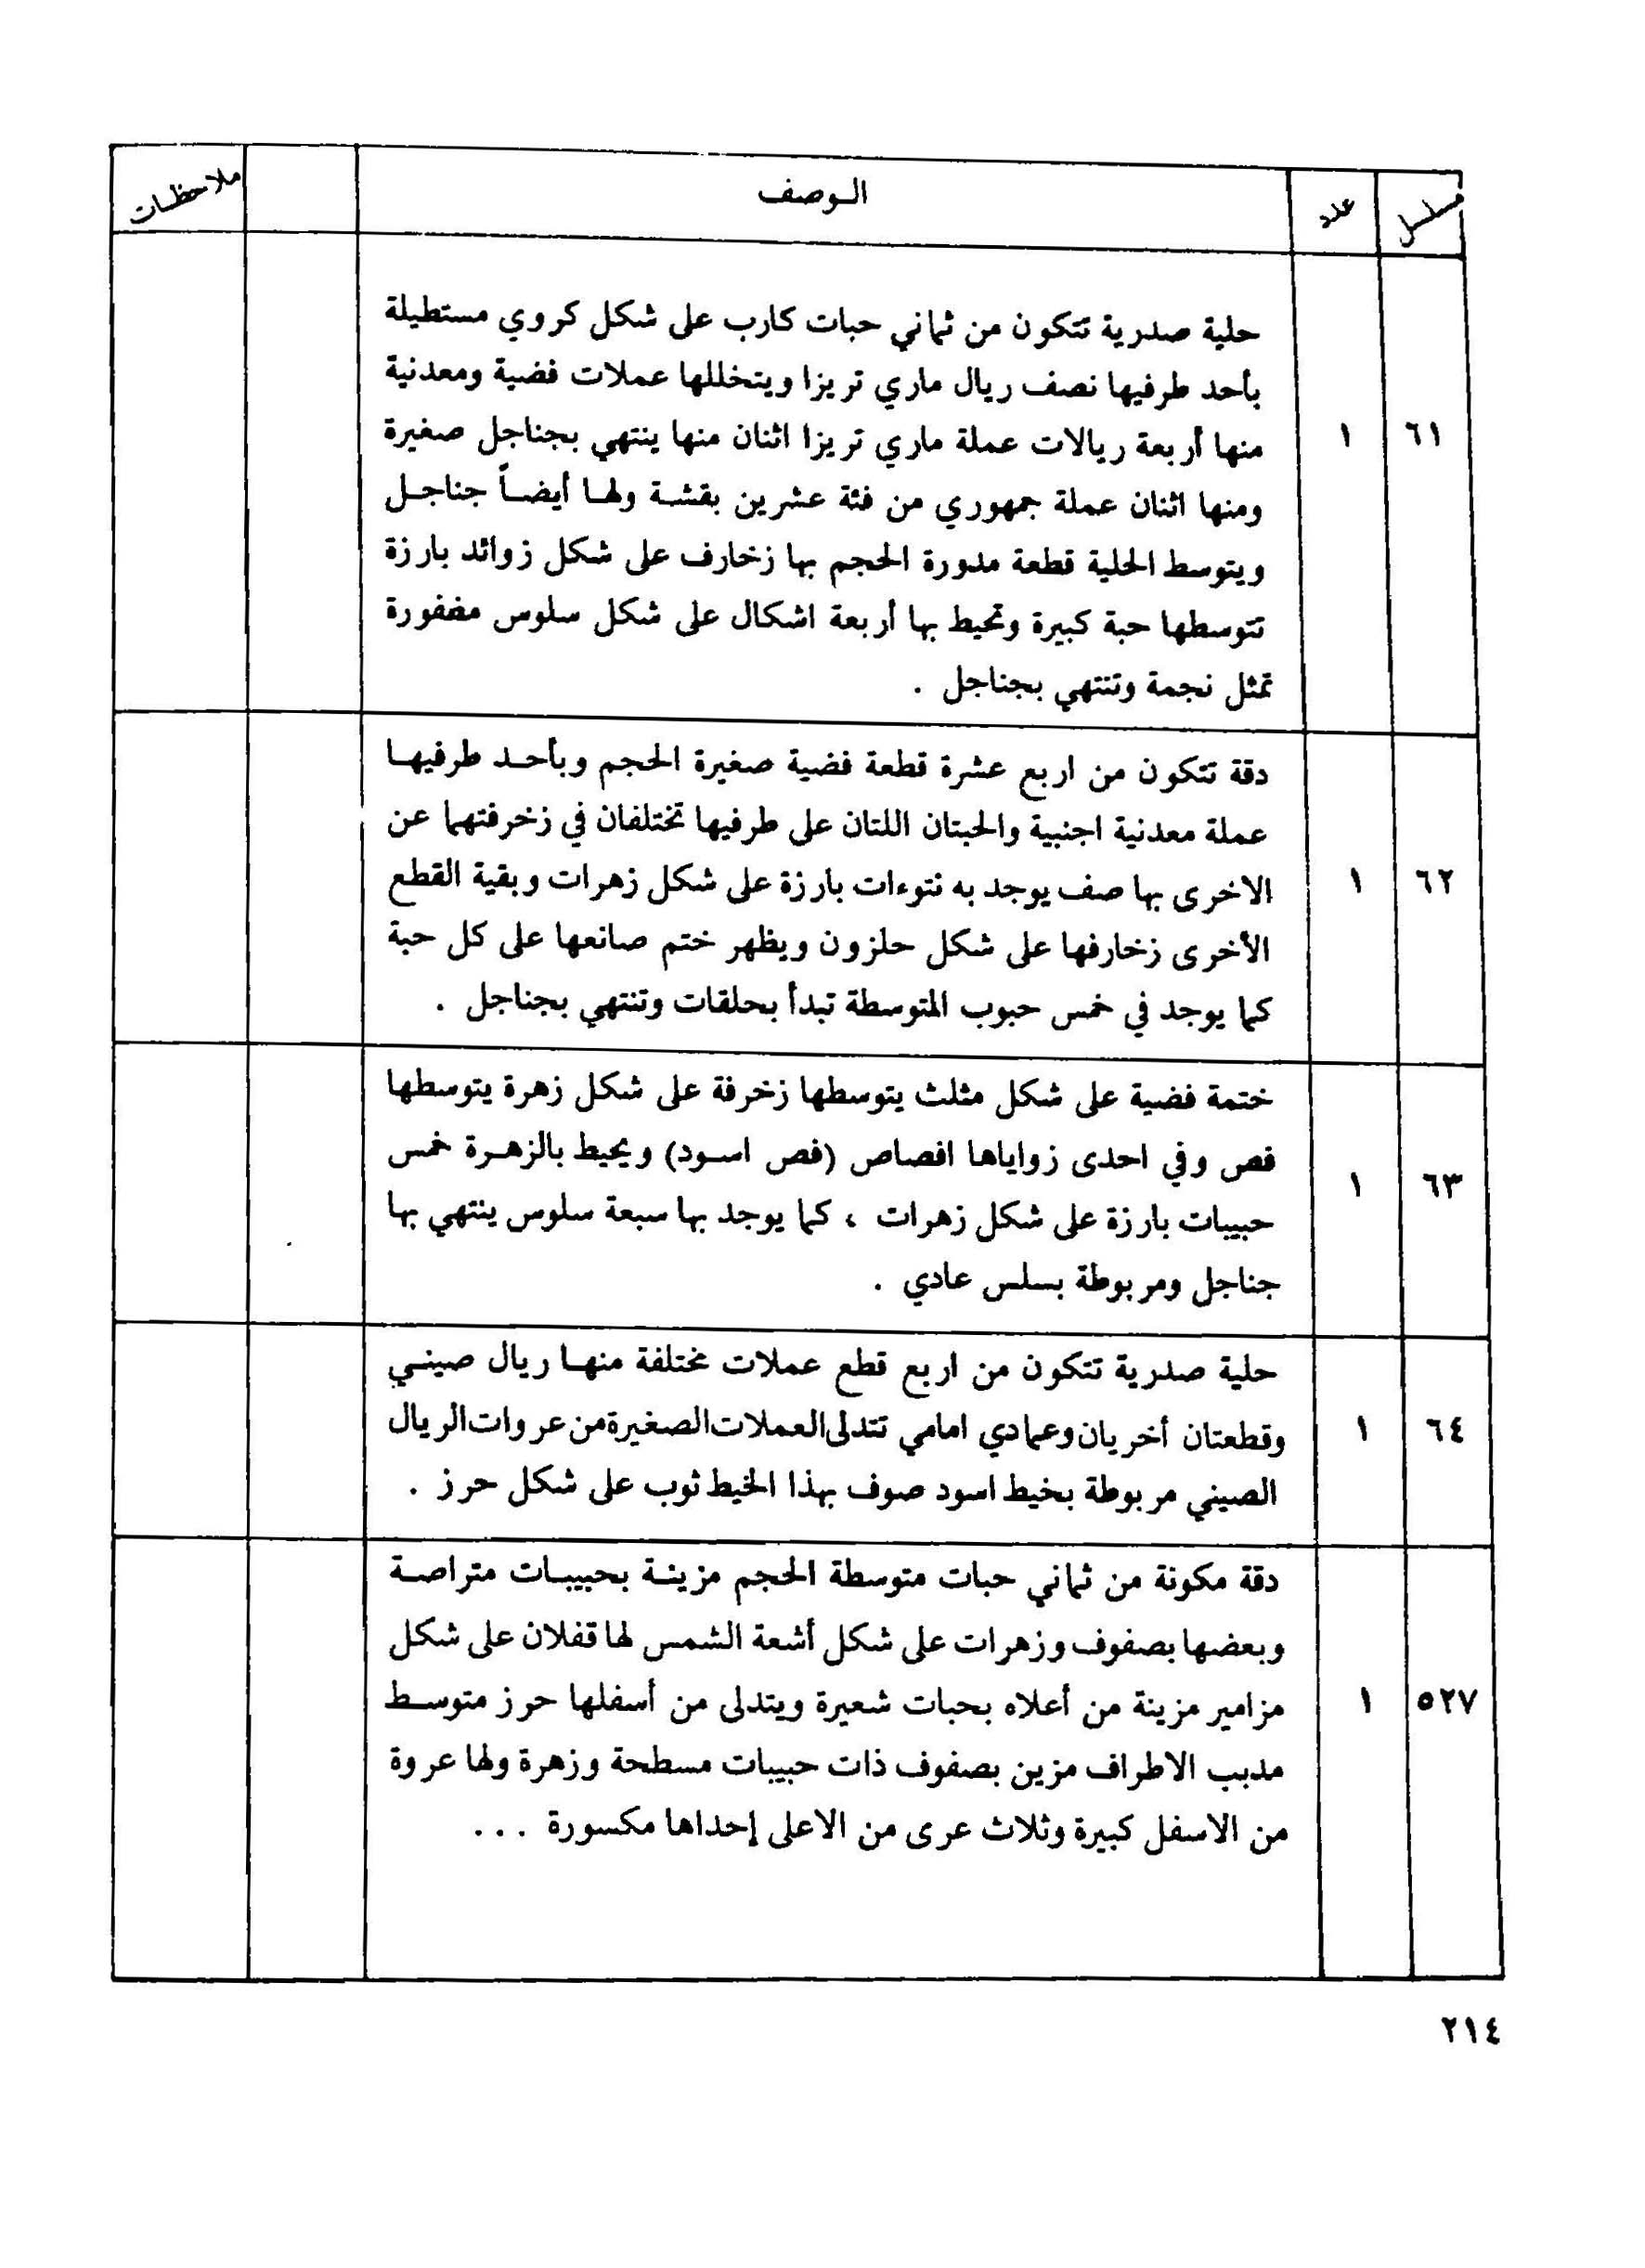 مسلسل عدد الـوصف ملاحظـات
حلية صدرية تتكون من ثماني حبات كارب على شكل كروي مستطيلة
بأحد طرفيها نصف ريال ماري تريزا ويتخللها عملات فضية ومعدنية
٦١ ١ منها أربعة ريالات عملة ماري تريزا اثنان منها ينتهي بجناجل صغيرة
ومنها اثنان عملة جمهوري من فئة عشرين بقشـة ولهـا أيضـاً جناجـل
ويتوسط الحلية قطعة مدورة الحجم بها زخارف على شكل زوائد بارزة
تتوسطها حبة كبيرة وتحيط بها أربعة اشكال على شكل سلوس مضفورة
تمثل نجمة وتنتهي بجناجل .
دقة تتكون من اربع عشرة قطعة فضية صغيرة الحجم وبأحـد طرفيهـا
عملة معدنية اجنبية والحبتان اللتان على طرفيها تختلفان في زخرفتهما عن
٦٢ ١ الاخرى بها صف يوجد به نتوءات بارزة على شكل زهرات وبقية القطع
الأخرى زخارفها على شكل حلزون ويظهر ختم صانعها على كل حبة
كما يوجد في خمس حبوب المتوسطة تبدأ بحلقات وتنتهي بجناجل .
ختمة فضية على شكل مثلث يتوسطها زخرفة على شكل زهرة يتوسطها
فص وفي احدى زواياها افصاص (فص اسـود) ويحيط بالزهـرة خمس
٦٣ ١ حبيبات بارزة على شكل زهرات ، كما يوجد بها سبعة سلوس ينتهي بها
جناجل ومربوطة بسلس عادي .
حلية صدرية تتكون من اربع قطع عملات مختلفة منهـا ريال صينـي
٦٤ ١ وقطعتان أخريان وعمادي امامي تتدلى العملات الصغيرة من عروات الريال
الصيني مربوطة بخيط اسود صوف بهذا الخيط ثوب على شكل حرز .
دقة مكونة من ثماني حبات متوسطة الحجم مزينـة بحبيبـات متراصـة
وبعضها بصفوف وزهرات على شكل أشعة الشمس لها قفلان على شكل
٥٢٧ ١ مزامير مزينة من أعلاه بحبات شعيرة ويتدلى من أسفلها حرز متوسـط
مدبب الاطراف مزين بصفوف ذات حبيبات مسطحة وزهرة ولها عروة
من الاسفل كبيرة وثلاث عرى من الاعلى إحداها مكسورة . . .
٢١٤